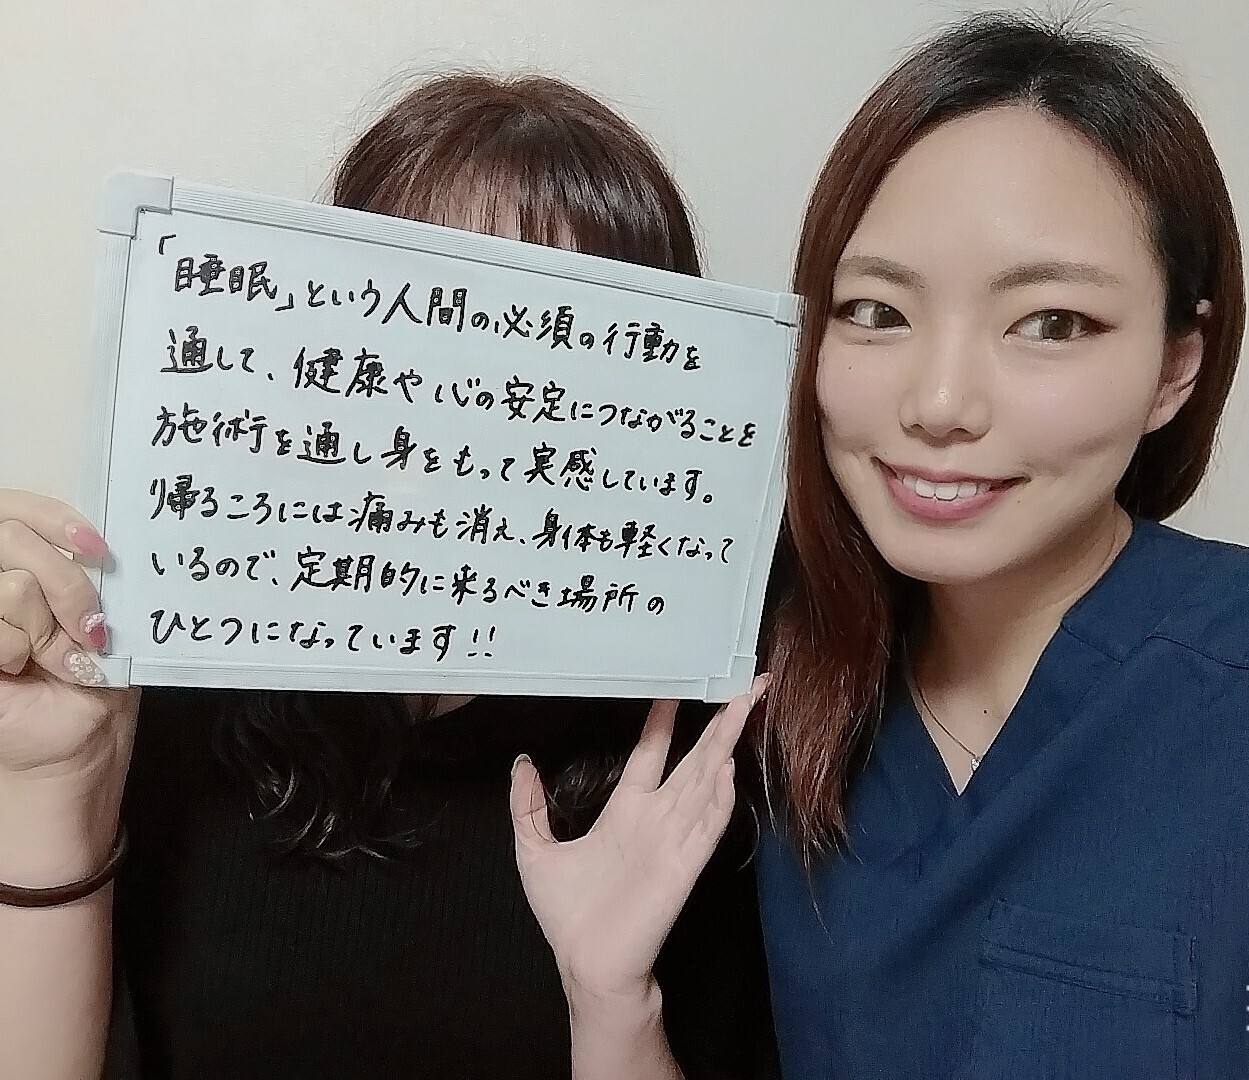 「睡眠」という人間の必須の行動を
通して、健康や心の安定につながることを
施術を通し身をもって実感しています。
帰るころには痛みも消え、身体も軽くなって
いるので、定期的に来るべき場所の
ひとつになっています!!